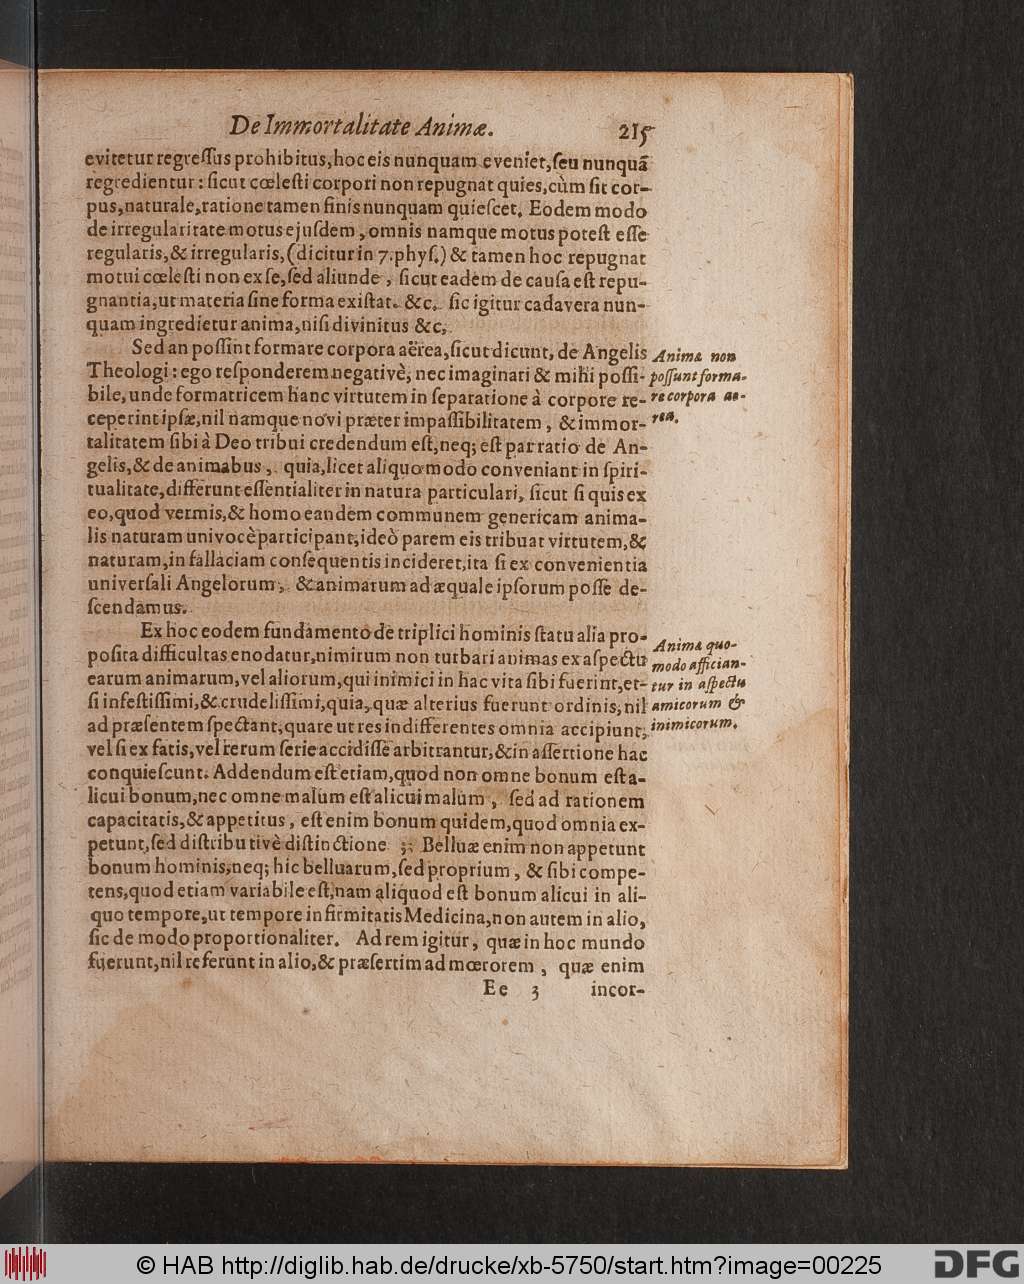 De Immortalitate Animæ. 215
evitetur regreſſus prohibitus, hoc eis nunquam eveniet, ſeu nunquã
regredientur: ſicut cœleſti corpori non repugnat quies, cùm ſit cor-
pus, naturale, ratione tamen finis nunquam quieſcet. Eodem modo
de irregularitate motus ejuſdem, omnis namque motus poteſt eſſe
regularis, & irregularis, (dicitur in 7. phyſ.) & tamen hoc repugnat
motui cœleſti non ex ſe, ſed aliunde, ſicut eadem de cauſa eſt repu-
gnantia, ut materia ſine forma exiſtat. &c. ſic igitur cadavera nun-
quam ingredietur anima, niſi divinitus &c.
Sed an poſſint formare corpora aërea, ſicut dicunt, de Angelis
Theologi: ego reſponderem negativè, nec imaginari & mihi poſſi-
bile, unde formatricem hanc virtutem in ſeparatione à corpore re-
ceperint ipſæ, nil namque novi præter impaſſibilitatem, & immor-
talitatem ſibi à Deo tribui credendum eſt, neq; eſt par ratio de An-
gelis, & de animabus, quia, licet aliquo modo conveniant in ſpiri-
tualitate, differunt eſſentialiter in natura particulari, ſicut ſi quis ex
eo, quod vermis, & homo eandem communem genericam anima-
lis naturam univocè participant, ideò parem eis tribuat virtutem, &
naturam, in fallaciam conſequentis incideret, ita ſi ex convenientia
univerſali Angelorum, & animarum ad æquale ipſorum poſſe de-
ſcendamus.
Animæ non
poſſunt forma-
re corpora ae-
rea.
Ex hoc eodem fundamento de triplici hominis ſtatu alia pro-
poſita difficultas enodatur, nimirum non turbari animas ex aſpectu
earum animarum, vel aliorum, qui inimici in hac vita ſibi fuerint, et-
ſi infeſtiſſimi, & crudeliſſimi, quia, quæ alterius fuerunt ordinis, nil
ad præſentem ſpectant, quare ut res indifferentes omnia accipiunt,
vel ſi ex fatis, vel rerum ſerie accidiſſe arbitrantur, & in aſſertione hac
conquieſcunt. Addendum eſt etiam, quod non omne bonum eſt a-
licui bonum, nec omne malum eſt alicui malum, ſed ad rationem
capacitatis, & appetitus, eſt enim bonum quidem, quod omnia ex-
petunt, ſed diſtributivè diſtinctione 3; Belluæ enim non appetunt
bonum hominis, neq; hic belluarum, ſed proprium, & ſibi compe-
tens, quod etiam variabile eſt, nam aliquod eſt bonum alicui in ali-
quo tempore, ut tempore infirmitatis Medicina, non autem in alio,
ſic de modo proportionaliter. Ad rem igitur, quæ in hoc mundo
fuerunt, nil referunt in alio, & præſertim ad mœrorem, quæ enim
Anima quo-
modo affician-
tur in aſpectu
amicorum &
inimicorum.
Ee 3 incor-
© HAB http://diglib.hab.de/drucke/xb-5750/start.htm?image=00225
DFG